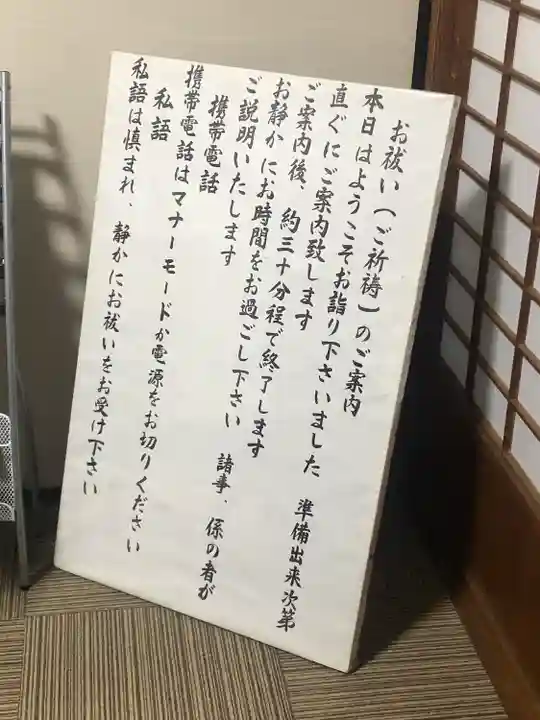 お祓い（ご祈祷）のご案内
本日はようこそお詣り下さいました　準備出来次第
直ぐにご案内致します
ご案内後、約三十分程で終了します
お静かにお時間をお過ごし下さい　諸事、係の者が
ご説明いたします
携帯電話
携帯電話はマナーモードか電源をお切りください
私語
私語は慎まれ、静かにお祓いをお受け下さい